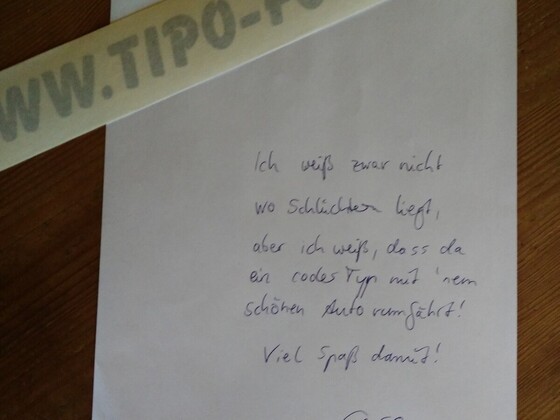 WW.TIPO-FO
Ich weiß zwar nicht
wo Schlüchtern liegt,
aber ich weiß, dass da
ein cooler Typ mit 'nem
schönen Auto rumfährt!
Viel Spaß damit!